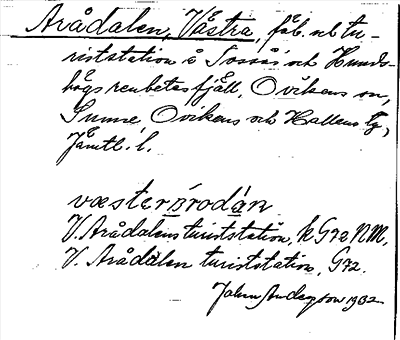 Arådalen, Västra, fäb. o. tu-
riststation å Tossås' och Hunds-
högs renbetesfjäll, Ovikens sn,
Sunne, Ovikens och Hallens tg,
Jämtl. l.
væsterårodán
V. Arådalens turiststation, k G72 NM,
V. Arådalen turiststation, G72.
John Andersson 1932